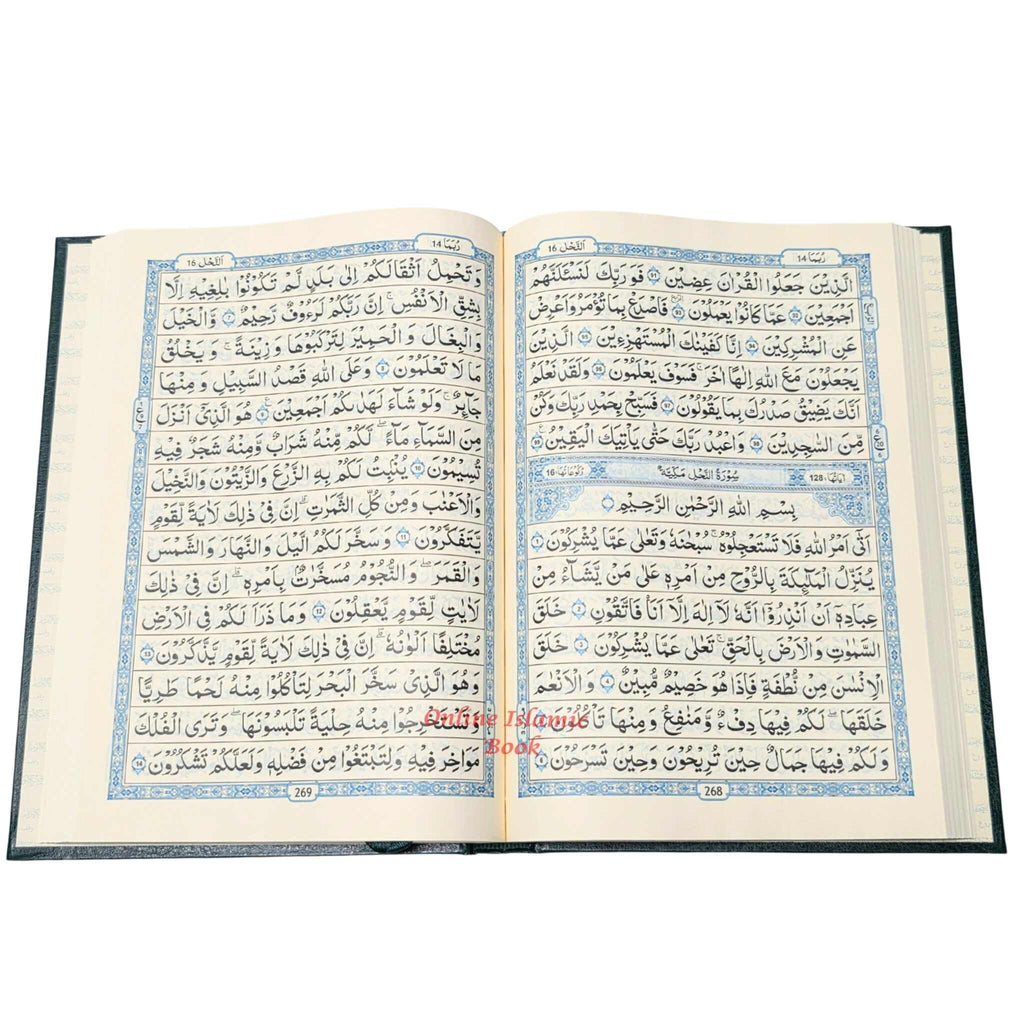 اَلنَّحْل 16
رُبَمَا 14
الَّذِيْنَ جَعَلُوا الْقُرْاٰنَ عِضِيْنَ 91 فَوَرَبِّكَ لَنَسْئَلَنَّهُمْ
اَجْمَعِيْنَ 92 عَمَّا كَانُوْا يَعْمَلُوْنَ 93 فَاصْدَعْ بِمَا تُؤْمَرُ وَاَعْرِضْ
عَنِ الْمُشْرِكِيْنَ 94 اِنَّا كَفَيْنٰكَ الْمُسْتَهْزِءِيْنَ 95 الَّذِيْنَ
يَجْعَلُوْنَ مَعَ اللّٰهِ اِلٰهًا اٰخَرَ ۚ فَسَوْفَ يَعْلَمُوْنَ 96 وَلَقَدْ نَعْلَمُ
اَنَّكَ يَضِيْقُ صَدْرُكَ بِمَا يَقُوْلُوْنَ 97 فَسَبِّحْ بِحَمْدِ رَبِّكَ وَكُنْ
مِّنَ السّٰجِدِيْنَ 98 وَاعْبُدْ رَبَّكَ حَتّٰى يَاْتِيَكَ الْيَقِيْنُ 99
اٰيَاتُهَا 128 سُوْرَةُ النَّحْلِ مَكِّيَّةٌ رُكُوْعَاتُهَا 16
بِسْمِ اللّٰهِ الرَّحْمٰنِ الرَّحِيْمِ
اَتٰۤى اَمْرُ اللّٰهِ فَلَا تَسْتَعْجِلُوْهُ ؕ سُبْحٰنَهٗ وَتَعٰلٰى عَمَّا يُشْرِكُوْنَ 1
يُنَزِّلُ الْمَلٰٓئِكَةَ بِالرُّوْحِ مِنْ اَمْرِهٖ عَلٰى مَنْ يَّشَآءُ مِنْ
عِبَادِهٖۤ اَنْ اَنْذِرُوْۤا اَنَّهٗ لَاۤ اِلٰهَ اِلَّاۤ اَنَا فَاتَّقُوْنِ 2 خَلَقَ
السَّمٰوٰتِ وَالْاَرْضَ بِالْحَقِّ ؕ تَعٰلٰى عَمَّا يُشْرِكُوْنَ 3 خَلَقَ
الْاِنْسٰنَ مِنْ نُّطْفَةٍ فَاِذَا هُوَ خَصِيْمٌ مُّبِيْنٌ 4 وَالْاَنْعٰمَ
خَلَقَهَا ۚ لَكُمْ فِيْهَا دِفْءٌ وَّمَنٰفِعُ وَمِنْهَا تَاْكُلُوْنَ 5
وَلَكُمْ فِيْهَا جَمَالٌ حِيْنَ تُرِيْحُوْنَ وَحِيْنَ تَسْرَحُوْنَ 6
268
اَلنَّحْل 16
رُبَمَا 14
وَتَحْمِلُ اَثْقَالَكُمْ اِلٰى بَلَدٍ لَّمْ تَكُوْنُوْا بٰلِغِيْهِ اِلَّا
بِشِقِّ الْاَنْفُسِ ؕ اِنَّ رَبَّكُمْ لَرَءُوْفٌ رَّحِيْمٌ 7 وَّالْخَيْلَ
وَالْبِغَالَ وَالْحَمِيْرَ لِتَرْكَبُوْهَا وَزِيْنَةً ؕ وَيَخْلُقُ
مَا لَا تَعْلَمُوْنَ 8 وَعَلَى اللّٰهِ قَصْدُ السَّبِيْلِ وَمِنْهَا
جَآئِرٌ ؕ وَلَوْ شَآءَ لَهَدٰىكُمْ اَجْمَعِيْنَ 9 هُوَ الَّذِيْۤ اَنْزَلَ
مِنَ السَّمَآءِ مَآءً لَّكُمْ مِّنْهُ شَرَابٌ وَّمِنْهُ شَجَرٌ فِيْهِ
تُسِيْمُوْنَ 10 يُنْۢبِتُ لَكُمْ بِهِ الزَّرْعَ وَالزَّيْتُوْنَ وَالنَّخِيْلَ
وَالْاَعْنٰبَ وَمِنْ كُلِّ الثَّمَرٰتِ ؕ اِنَّ فِيْ ذٰلِكَ لَاٰيَةً لِّقَوْمٍ
يَّتَفَكَّرُوْنَ 11 وَسَخَّرَ لَكُمُ الَّيْلَ وَالنَّهَارَ وَالشَّمْسَ
وَالْقَمَرَ ؕ وَالنُّجُوْمُ مُسَخَّرٰتٌۢ بِاَمْرِهٖ ؕ اِنَّ فِيْ ذٰلِكَ
لَاٰيٰتٍ لِّقَوْمٍ يَّعْقِلُوْنَ 12 وَمَا ذَرَاَ لَكُمْ فِى الْاَرْضِ
مُخْتَلِفًا اَلْوَانُهٗ ؕ اِنَّ فِيْ ذٰلِكَ لَاٰيَةً لِّقَوْمٍ يَّذَّكَّرُوْنَ 13
وَهُوَ الَّذِيْ سَخَّرَ الْبَحْرَ لِتَاْكُلُوْا مِنْهُ لَحْمًا طَرِيًّا
وَّتَسْتَخْرِجُوْا مِنْهُ حِلْيَةً تَلْبَسُوْنَهَا ۚ وَتَرَى الْفُلْكَ
مَوَاخِرَ فِيْهِ وَلِتَبْتَغُوْا مِنْ فَضْلِهٖ وَلَعَلَّكُمْ تَشْكُرُوْنَ 14
269
Online Islamic
Book